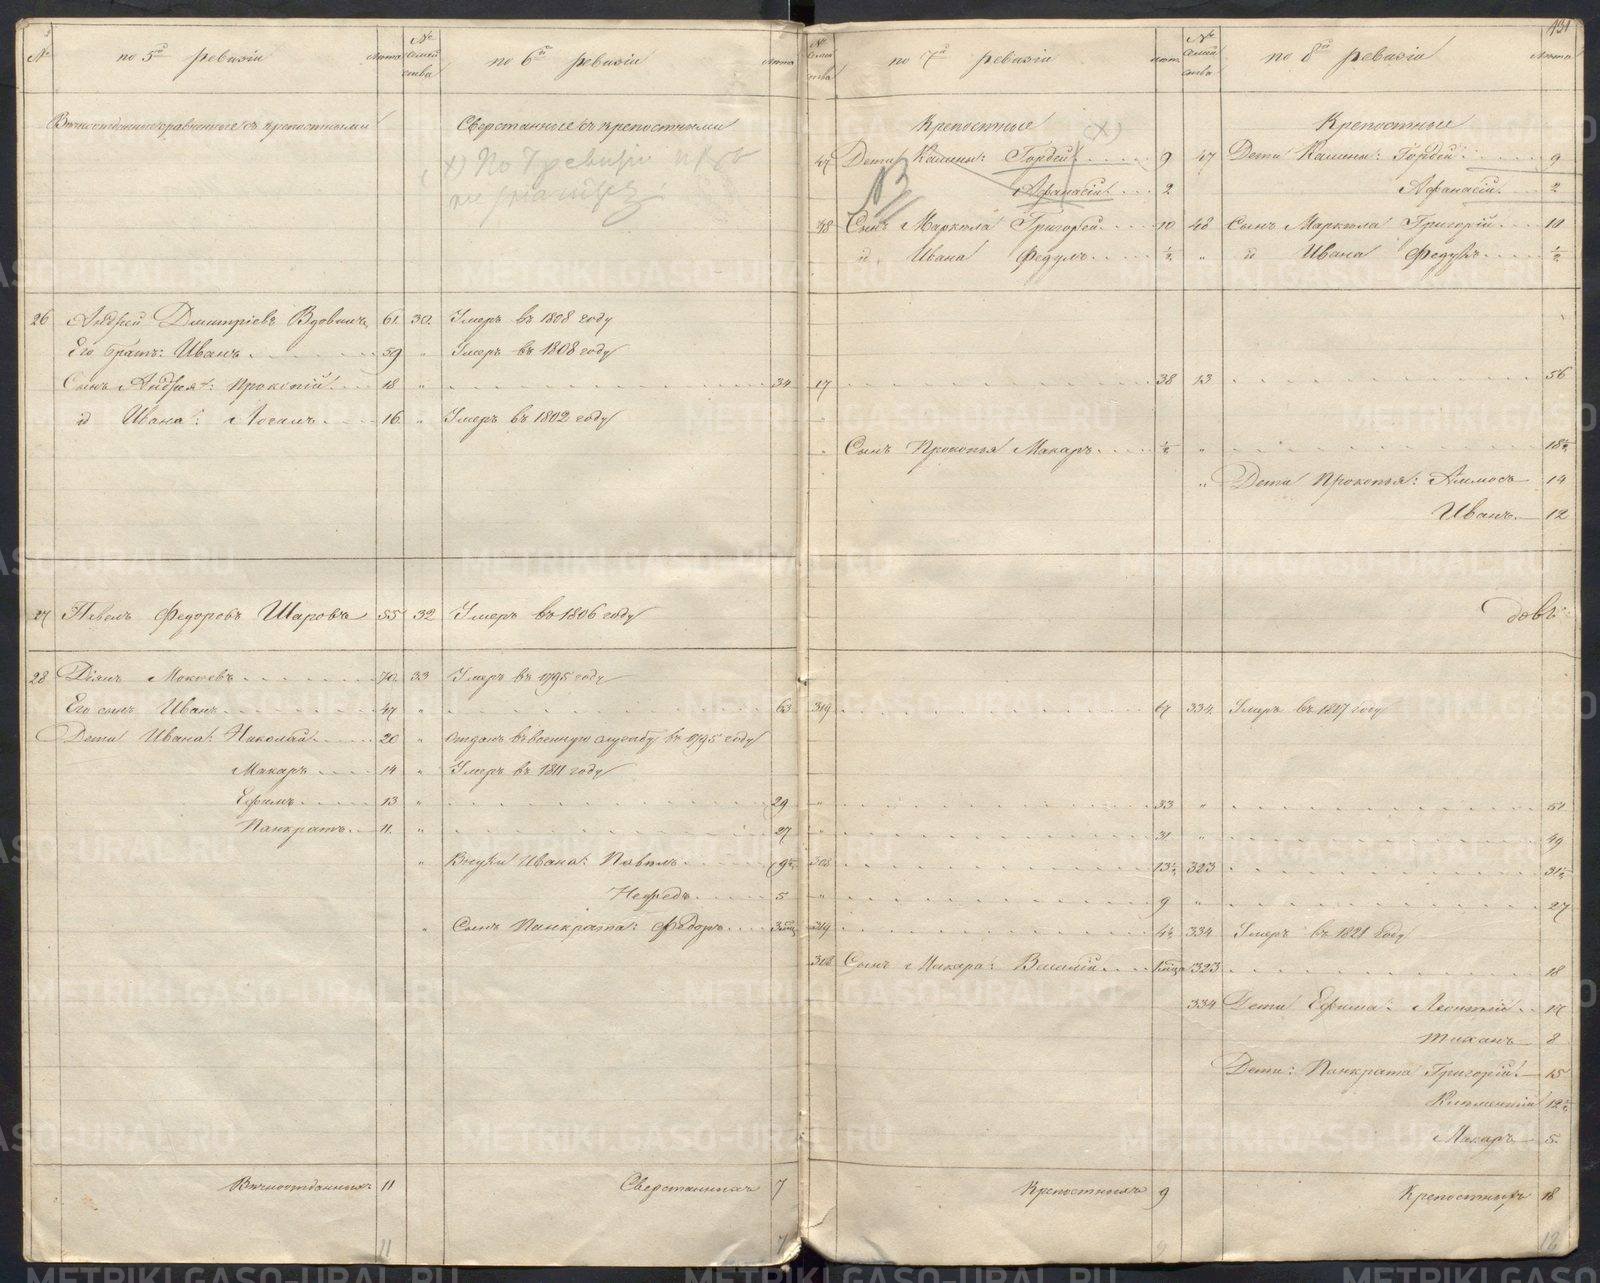 № по 5й ревизіи лѣта № семейства по 6й ревизіи лѣта № семейства по 7й ревизіи лѣта № семейства по 8й ревизіи лѣта 131
Вѣчноотданные сравненные съ крепостными Сверстанные съ крепостными Крепостные Крепостные
х) По 7 ревизіи (х)
47 Дети Калины: Гордей 9 47 Дети Калины: Гордей 9
Афанасій 2 Афанасій 2
48 Сынъ Маркела Григорей 10 48 Сынъ Маркела Григорій 10
и Ивана Федулъ ½ " и Ивана Федулъ ½
26 Андрей Дмитріевъ Вдовинъ 61 30 Умеръ въ 1808 году
Его братъ: Иванъ 59 " Умеръ въ 1808 году
Сынъ Андрея: Прокопій 18 " 34 17 38 13 56
id Ивана: Логинъ 16 " Умеръ въ 1802 году
" Сынъ Прокопья Макаръ ½ " 18½
" Дети Прокопья: Аммосъ 14
Иванъ 12
27 Павелъ Федоровъ Шаровъ 55 32 Умеръ въ 1806 году
28 Діянъ Мокеевъ 70 33 Умеръ въ 1795 году
Его сынъ Иванъ 47 " 63 319 67 334 Умеръ въ 1817 году
Дети Ивана: Николай 20 " Отданъ въ военную службу въ 1795 году
Макаръ 14 " Умеръ въ 1811 году
Ефимъ 13 " 29 " 33 " 51
Панкратъ 11 " 27 " 31 " 49
" Внуки Ивана: Павелъ 9½ 308 13½ 323 31½
Нефедъ 5 " 9 " 27
" Сынъ Панкрата: Федоръ 319 4½ 334 Умеръ въ 1821 году
308 Сынъ Макара: Василій 323 18
334 Дети Ефима: Леонтій 17
Тиханъ 8
Дети: Панкрата Григорій 15
Климентій 12½
Макаръ 5
Вѣчноотданныхъ 11 Сверстанныхъ 7 Крепостныхъ 9 Крепостныхъ 18
11 7 9 18
METRIKI.GASO-URAL.RU